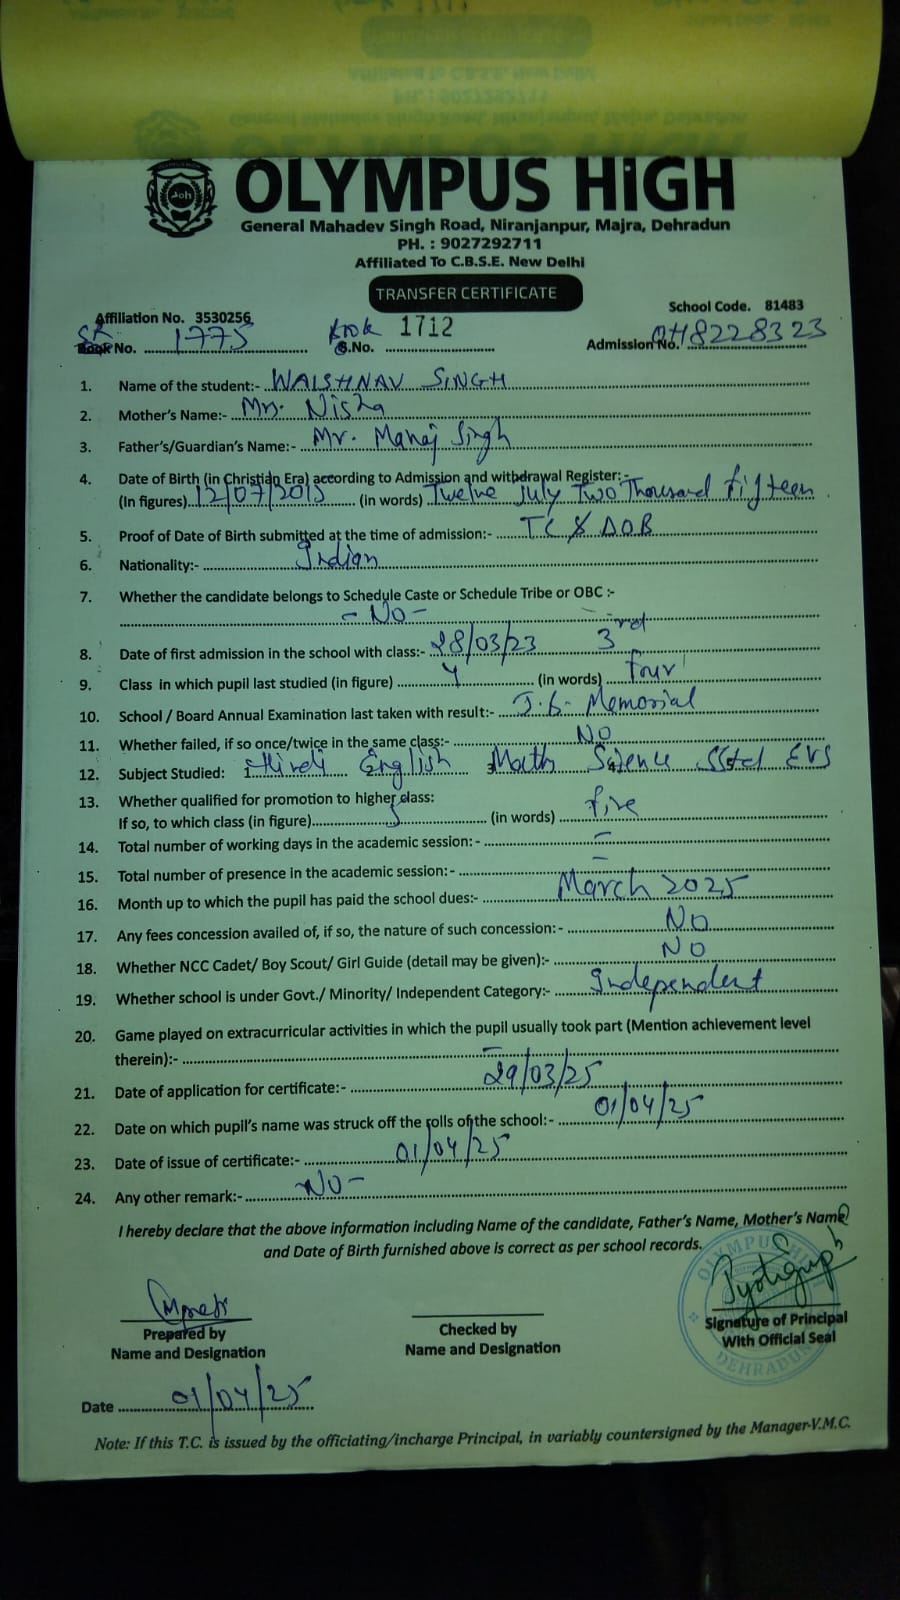 OLYMPUS HiGH
General Mahadev Singh Road, Niranjanpur, Majra, Dehradun
PH. : 9027292711
Affiliated To C.B.S.E. New Delhi
TRANSFER CERTIFICATE
Affiliation No. 3530256 School Code. 81483
SR Book No. 1775 Book S.No. 1712 Admission No. OH8228323
1. Name of the student:- WAISHNAV SINGH
2. Mother's Name:- Mrs. Nisha
3. Father's/Guardian's Name:- Mr. Manoj Singh
4. Date of Birth (in Christian Era) according to Admission and withdrawal Register:-
(In figures) 12/07/2015 (in words) Twelve July Two Thousand fifteen
5. Proof of Date of Birth submitted at the time of admission:- TC & DOB
6. Nationality:- Indian
7. Whether the candidate belongs to Schedule Caste or Schedule Tribe or OBC :-
- No -
8. Date of first admission in the school with class:- 28/03/23 3rd
9. Class in which pupil last studied (in figure) 4 (in words) four
10. School / Board Annual Examination last taken with result:- Memorial
11. Whether failed, if so once/twice in the same class:- NO
12. Subject Studied: 1. Hindi English 3. Math Science EVS
13. Whether qualified for promotion to higher class:
If so, to which class (in figure) 5 (in words) five
14. Total number of working days in the academic session:- -
15. Total number of presence in the academic session:- -
16. Month up to which the pupil has paid the school dues:- March 2025
17. Any fees concession availed of, if so, the nature of such concession:- NO
18. Whether NCC Cadet/ Boy Scout/ Girl Guide (detail may be given):- NO
19. Whether school is under Govt./ Minority/ Independent Category:- Independent
20. Game played on extracurricular activities in which the pupil usually took part (Mention achievement level
therein):- -
21. Date of application for certificate:- 29/03/25
22. Date on which pupil's name was struck off the rolls of the school:- 01/04/25
23. Date of issue of certificate:- 01/04/25
24. Any other remark:- -NO-
I hereby declare that the above information including Name of the candidate, Father's Name, Mother's Name
and Date of Birth furnished above is correct as per school records.
OLYMPUS HIGH
DEHRADUN
Prepared by Checked by Signature of Principal
Name and Designation Name and Designation With Official Seal
Date 01/04/25
Note: If this T.C. is issued by the officiating/incharge Principal, in variably countersigned by the Manager-V.M.C.